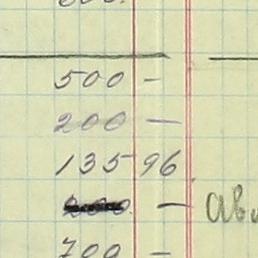 500 —
200 —
135 96
— Ab
700 —